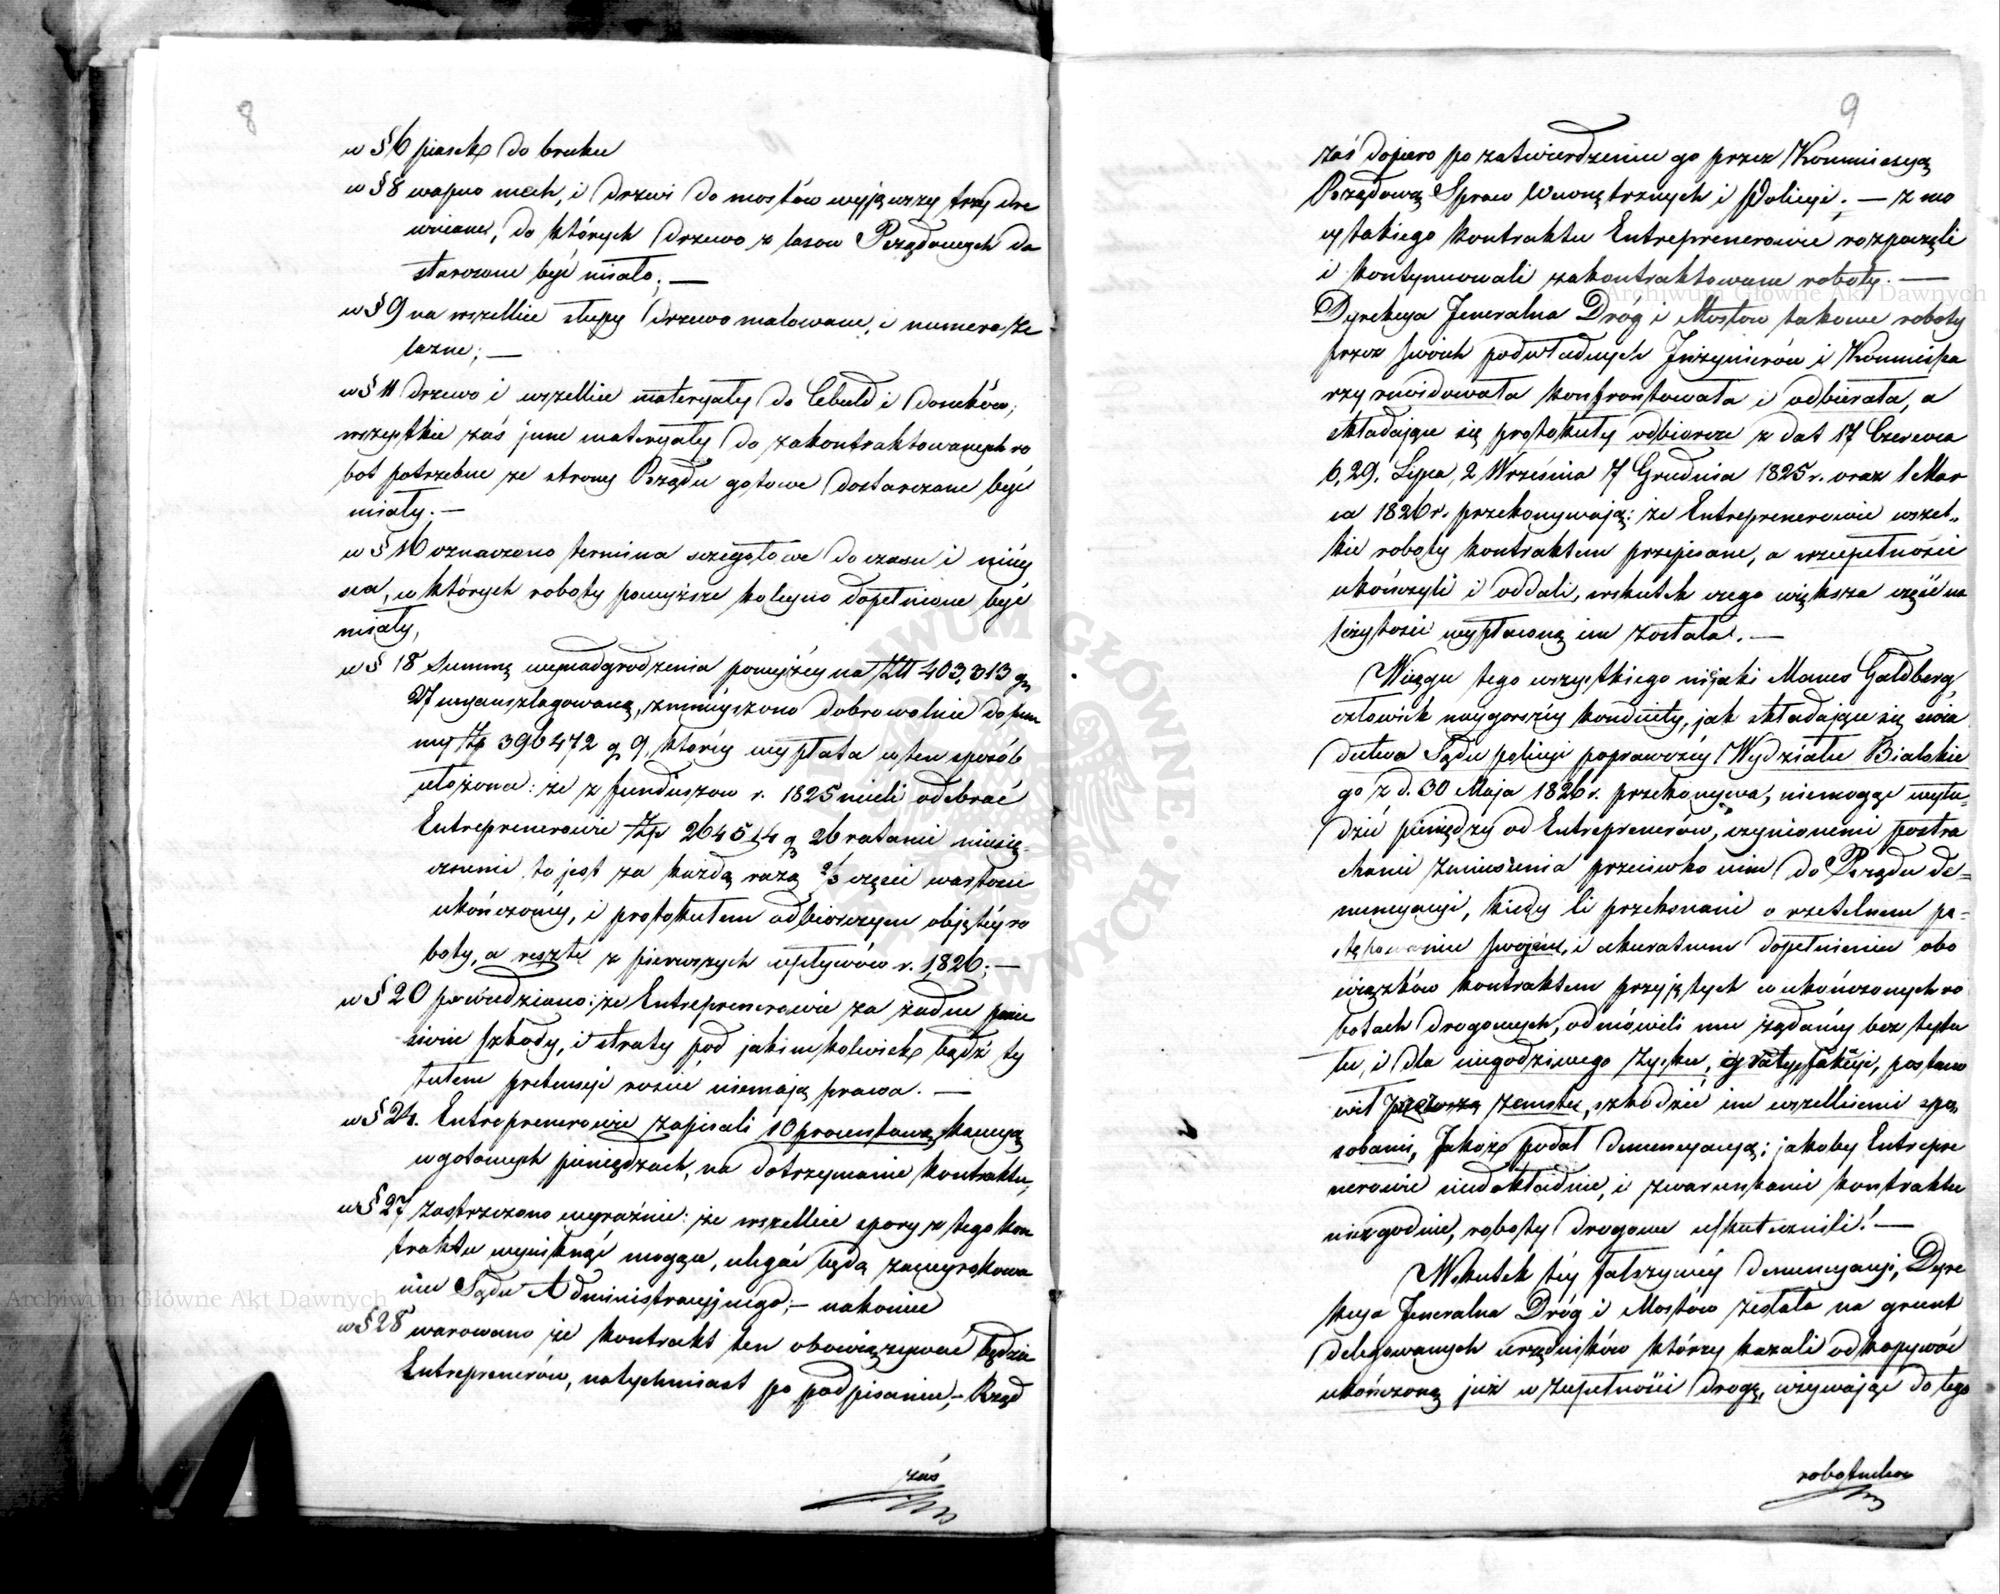 8
w § 6 piasek do bruku
w § 8 wapno mech, i drzwi do mostów wyjąwszy trzy dre
wniane, do których drzewo z lasow Rządowych do
starczone być miało; —
w § 9 na wszelkie słupy drzewo malowane, i numera że
lazne; —
w § 11 drzewo i wszelkie materyały do Cebuld i domków;
wszystkie zaś jnne materyały do zakontraktowanych ro
bot potrzebne ze strony Rządu gotowe dostarczane być
miały. —
w § 16 oznaczono termina szczegółowe do czasu i miey
sca, w których roboty powyższe koleyno dopełnione być
miały,
w § 18 Summę wynadgrodzenia powyżéy na Złł 403,313 gr
27 wyanszlagowaną, zmnieyszono dobrowolnie do sum
my Złp 396472 g 9, któréy wypłata w ten sposób
ułożona: że z funduszow r. 1825 mieli odebrać
Entreprenerowie Złp 264514 g 26 ratami miesię=
cznemi to jest za każdą razą 2/3 części wartości
ukończonéy, i protokułem odbiorczym objętéy ro
boty, a resztę z pierwszych wpływów r. 1826; —
w § 20 powiedziano: że Entreprenerowie za żadne ponie
sione szkody, i straty pod jakimkolwiek bądź ty
tułem pretensyi rościć niemają prawa. —
w § 24. Entreprenerowie zapisali 10 procentową kaucyą
w gotowych pieniędzach, na dotrzymanie kontraktu;
w § 27 zastrzeżono wyraźnie: że wszelkie spory z tego kon
traktu wyniknąć mogące, ulegać będą zawyrokowa
niu Sądu Administracyjnego; — nakoniec
w § 28 warowano że kontrakt ten obowiązywać będzie
Entreprenerów, natychmiast po podpisaniu, — Rząd
zaś
9
zaś dopiero po zatwierdzeniu go przez Kommissyą
Rządową Spraw Wewnętrznych i Policyi. — Z mo
cy takiego kontraktu Entreprenerowie rozpoczęli
i kontynuowali zakontraktowane roboty. —
Dyrekcya Jeneralna Dróg i Mostow takowe roboty
przez swoich podwładnych Inżynierów i Kommissa
rzy rewidowała konfrontowała i odbierała, a
składające się protokuły odbiorcze z dat 17 Czerwca
6, 29. Lipca, 2 Września 7 Grudnia 1825 r. oraz 1 Mar
ca 1826 r. przekonywają: że Entreprenerowie wszel=
kie roboty kontraktem przepisane, a w zupełności
ukończyli i oddali, wskutek czego większa część na
leżytości wypłaconą im została. —
Wciągu tego wszystkiego nijaki Manes Goldberg
człowiek naygorszéy konduity, jak składające się świa
dectwa Sądu policyi poprawczéy Wydziału Bialskie
go z d. 30 Maja 1826 r. przekonywa, niemogąc wyłu=
dzić pieniędzy od Entreprenerów, czynionemi postra
chami zaniesienia przeciwko nim do Rządu de=
nuncyacyi, kiedy ci przekonani o rzetelnem po=
stępowaniu swojem, i akuratnem dopełnieniu obo
wiązków kontraktem przyjętych w ukończonych ro
botach drogowych, odmówili mu żądanéy bez tytu
łu, i dla niegodziwego zysku, gratyfikacyi, postano
wił przez zemstę, szkodzić im wszelkiemi spo
sobami, Jakoż podał denuncyacyą; jakoby Entrepre
nerowie niedokładnie, i z warunkami kontraktu
niezgodnie, roboty drogowe uskutecznili! —
Wskutek téy fałszywéy denuncyacyi, Dyre
kcya Jeneralna Dróg i Mostów zesłała na grunt
delegowanych urzędników którzy kazali odkopywać
ukończoną już w zupełności drogę, używając do tego
robotników
Archiwum Główne Akt Dawnych
Archiwum Główne Akt Dawnych